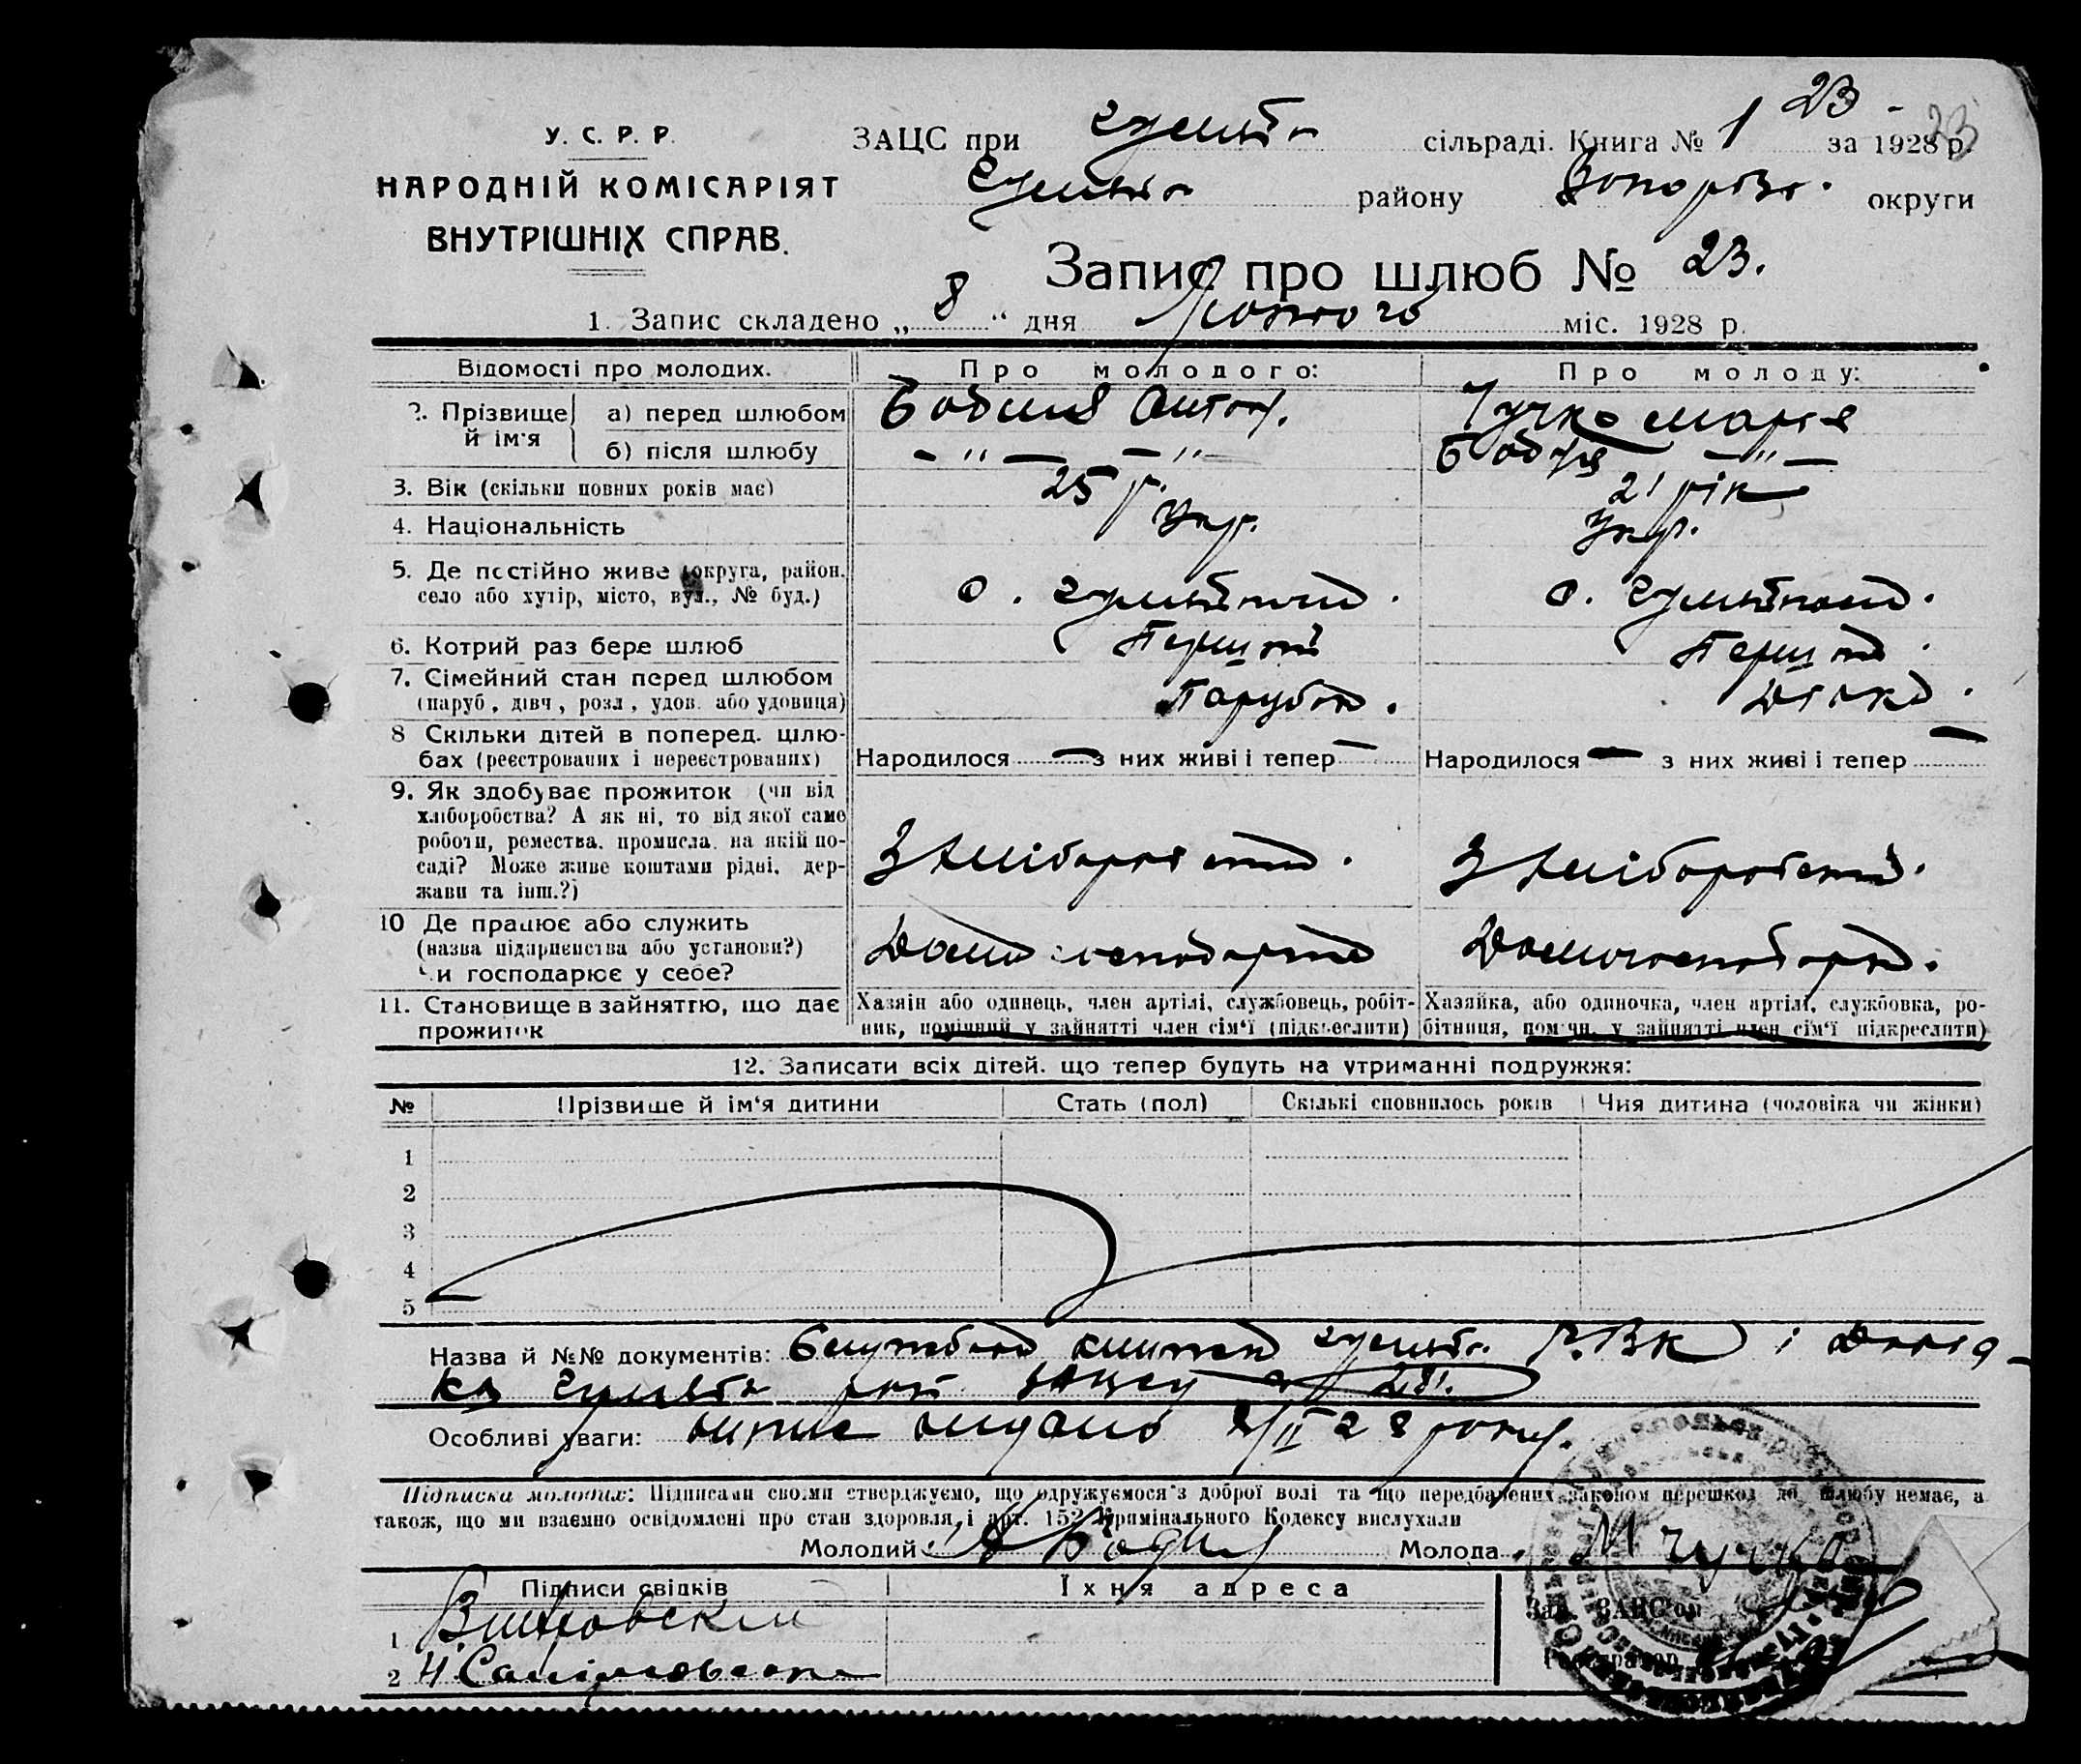 23 -
23
У. С. Р. Р.
НАРОДНІЙ КОМІСАРІЯТ
ВНУТРІШНІХ СПРАВ.
ЗАЦС при сільраді. Книга № 1 за 1928 р.
району Запорізь. округи
Запис про шлюб № 23.
1. Запис складено „ 8 “ дня Лютого міс. 1928 р.
Відомості про молодих. Про молодого: Про молоду:
2. Прізвище й ім'я а) перед шлюбом Антон. Чучко Марія
б) після шлюбу — „ — — „ — — „ —
3. Вік (скільки повних років має) 25 р. 21 рік
4. Національність Укр. Укр.
5. Де постійно живе (округа, район,
село або хутір, місто, вул., № буд.) с. Гуляйполе. с. Гуляйполе.
6. Котрий раз бере шлюб Перший Перший.
7. Сімейний стан перед шлюбом
(паруб, дівч, розл, удов. або удовиця) Парубок. Дівка.
8 Скільки дітей в поперед. шлю-
бах (реєстрованих і нереєстрованих) Народилося — з них живі і тепер — Народилося — з них живі і тепер —
9. Як здобуває прожиток (чи від
хліборобства? А як ні, то від якої саме
роботи, ремества, промисла, на якій по-
саді? Може живе коштами рідні, дер-
жави та інш.?) З хліборобства. З хліборобства.
10 Де працює або служить
(назва підприємства або установи?)
Чи господарює у себе? Домогосподарка.
11. Становище в зайняттю, що дає
прожиток
Хазяін або одинець, член артілі, службовець, робіт-
ник, помічний у зайнятті член сім'ї (підкреслити)
Хазяйка, або одиночка, член артілі, службовка, ро-
бітниця, помічн. у зайнятті член сім'ї підкреслити)
12. Записати всіх дітей, що тепер будуть на утриманні подружжя:
№ Прізвище й ім'я дитини Стать (пол) Скількі сповнилось років Чия дитина (чоловіка чи жінки)
1
2
3
4
5
Назва й №№ документів: книжка Р.В.К і Довід-
ка ЗАЦСу 281.
Особливі уваги: видано 8/II 28 року.
Підписка молодих: Підписами своїми стверджуємо, що одружуємося з доброї волі та що передбачених законом перешкод до шлюбу немає, а
також, що ми взаємно освідомлені про стан здоров'я, і арт. 152 Крамінального Кодексу вислухали
Молодий: Молода М Чучко
Підписи свідків Їхня адреса
1
2
Зав. ЗАЦС'ом
Реєстратор